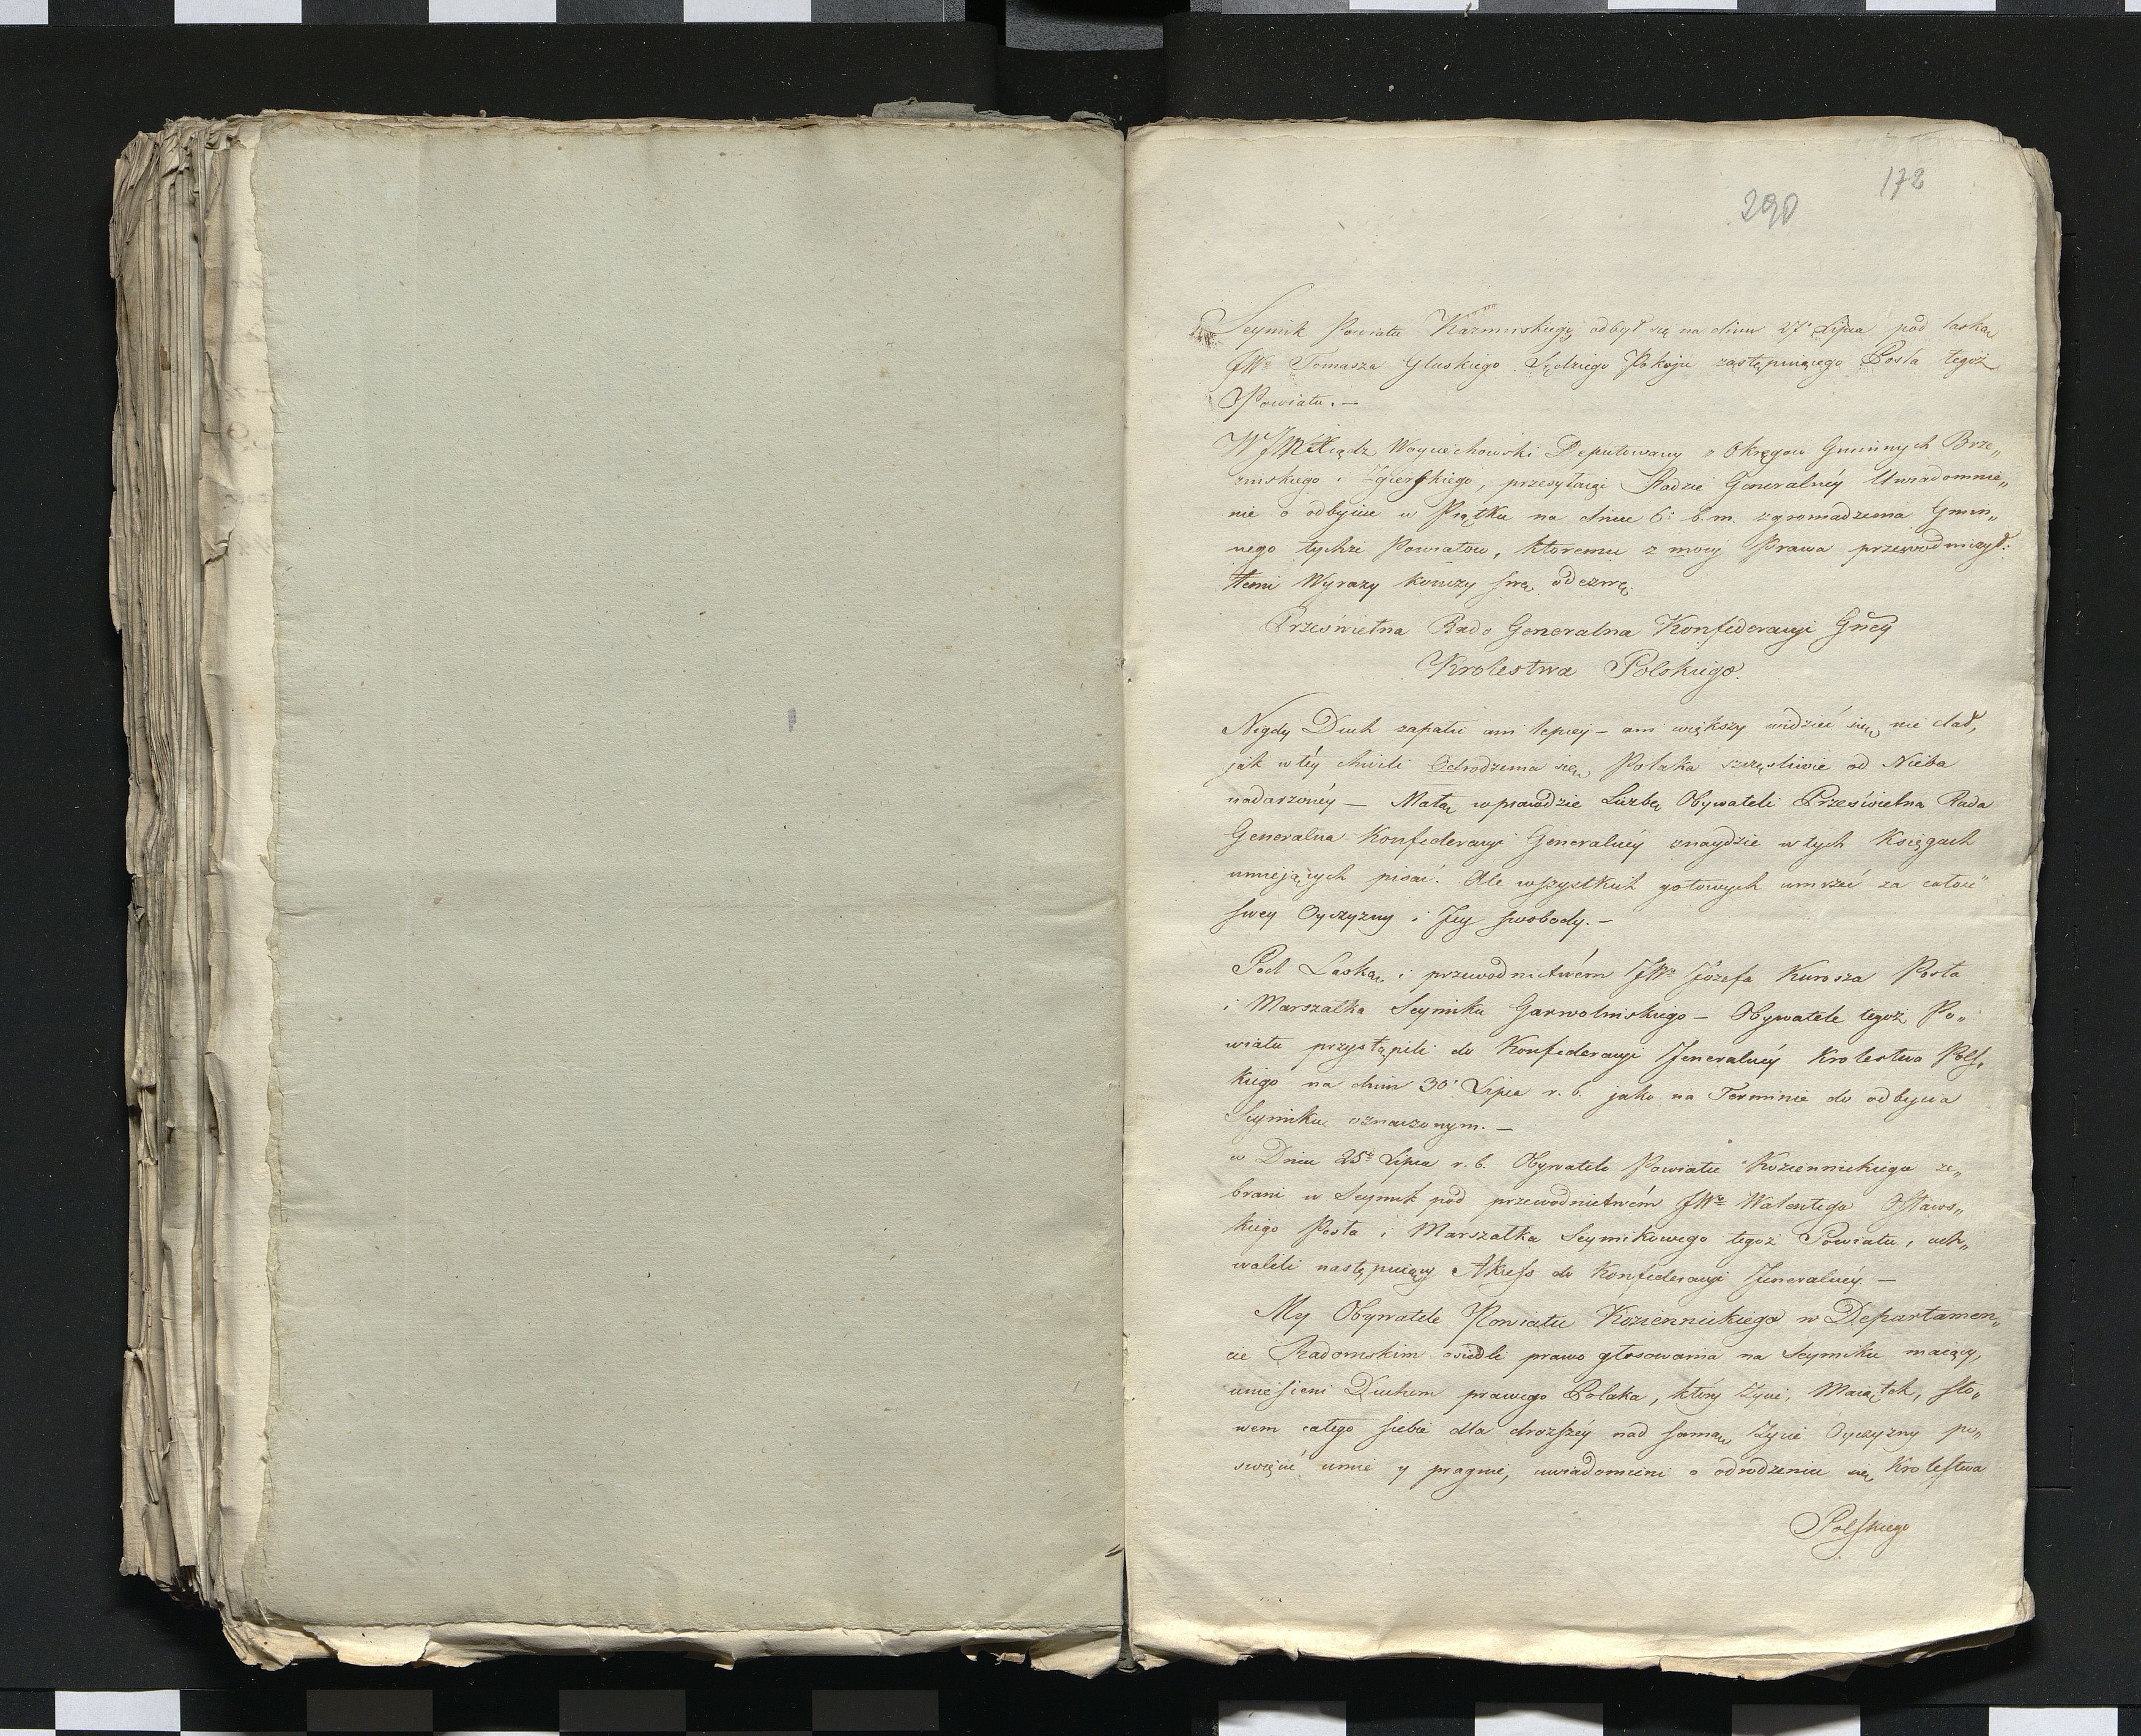 172
290
Seymik Powiatu Kazmirskiego odbył się na dniu 27 Lipca pod laską
JWo Tomasza Gluskiego Sędziego Pokoju zastępuiącego Posła tegoż
Powiatu. —
WJMXiądz Woyciechowski Deputowany z Okręgow Gminnych Brze„
zinskiego i Zgierskiego, przesyłaiąc Radzie Generalnéy Uwiadomnie„
nie o odbyciu w Piątku na dniu 6. b. m. zgromadzenia Gmin„
nego tychże Powiatow, ktoremu z mocy Prawa przewodniczył:
temi Wyrazy kończy swą odezwę.
Prześwietna Rado Generalna Konfederacyi Gney
Krolestwa Polskiego.
Nigdy Duch zapału ani lepiey – ani większy widzieć się nie dał,
jak w téy chwili Odrodzenia się Polaka szczęsliwie od Nieba
nadarzonéy — Małą wprawdzie Liczbę Obywateli Prześwietna Rada
Generalna Konfederacyi Generalnéy znaydzie w tych Księgach
umiejących pisać. Ale wszystkich gotowych umrzeć za całość
swey Oyczyzny i Jey swobody. –
Pod Laską i przewodnictwém JWo Józefa Kurosza Posła
i Marszałka Seymiku Garwolinskiego – Obywatele tegoż Po„
wiatu przystąpili do Konfederacyi Jeneralnéy Krolestwa Pols„
kiego na dniu 30 Lipca r. b. jako na Terminie do odbycia
Seymiku oznaczonym. —
w Dniu 25o Lipca r. b. Obywatele Powiatu Koziennickiego ze„
brani w Seymik pod przewodnictwém JWo Walentego Ośławs„
kiego Posła i Marszałka Seymikowego tegoż Powiatu, uch„
walili następuiący Akcess do Konfederacyi Jeneralnéy. —
My Obywatele Powiatu Koziennickiego w Departamen„
cie Radomskim osiedli prawo głosowania na Seymiku maiący,
uniesieni Duchem prawego Polaka, który Życie, Maiątek, sło„
wem całego siebie dla droższéy nad samo Życie Oyczyzny po„
święcić umie y pragnie, uwiadomieni o odrodzeniu się Krolestwa
Polskiego